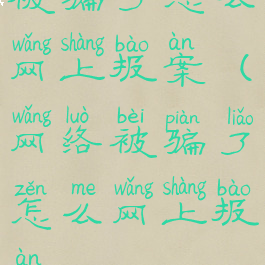 被骗了怎么
wǎng shàng bào àn
网上报案（
wǎng luò bèi piàn liǎo
网络被骗了
zěn me wǎng shàng bào
怎么网上报
àn